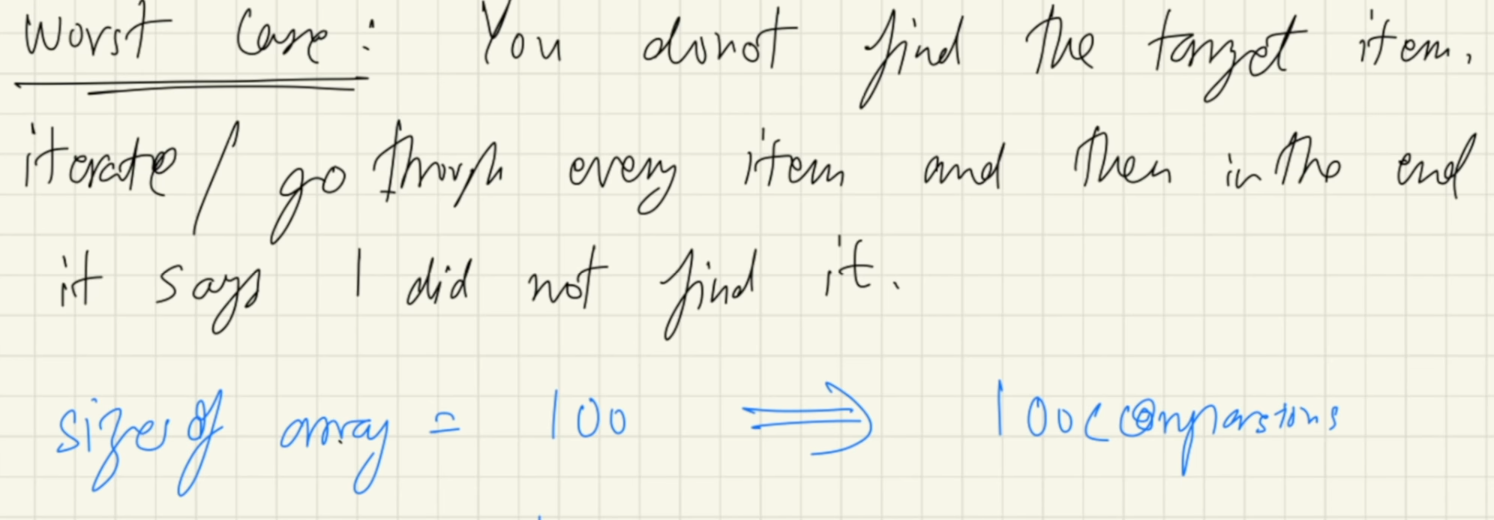 Worst Case: You donot find the target item.
iterate / go through every item and then in the end
it says I did not find it.
sizes of array = 100 ⟹ 100 comparisons